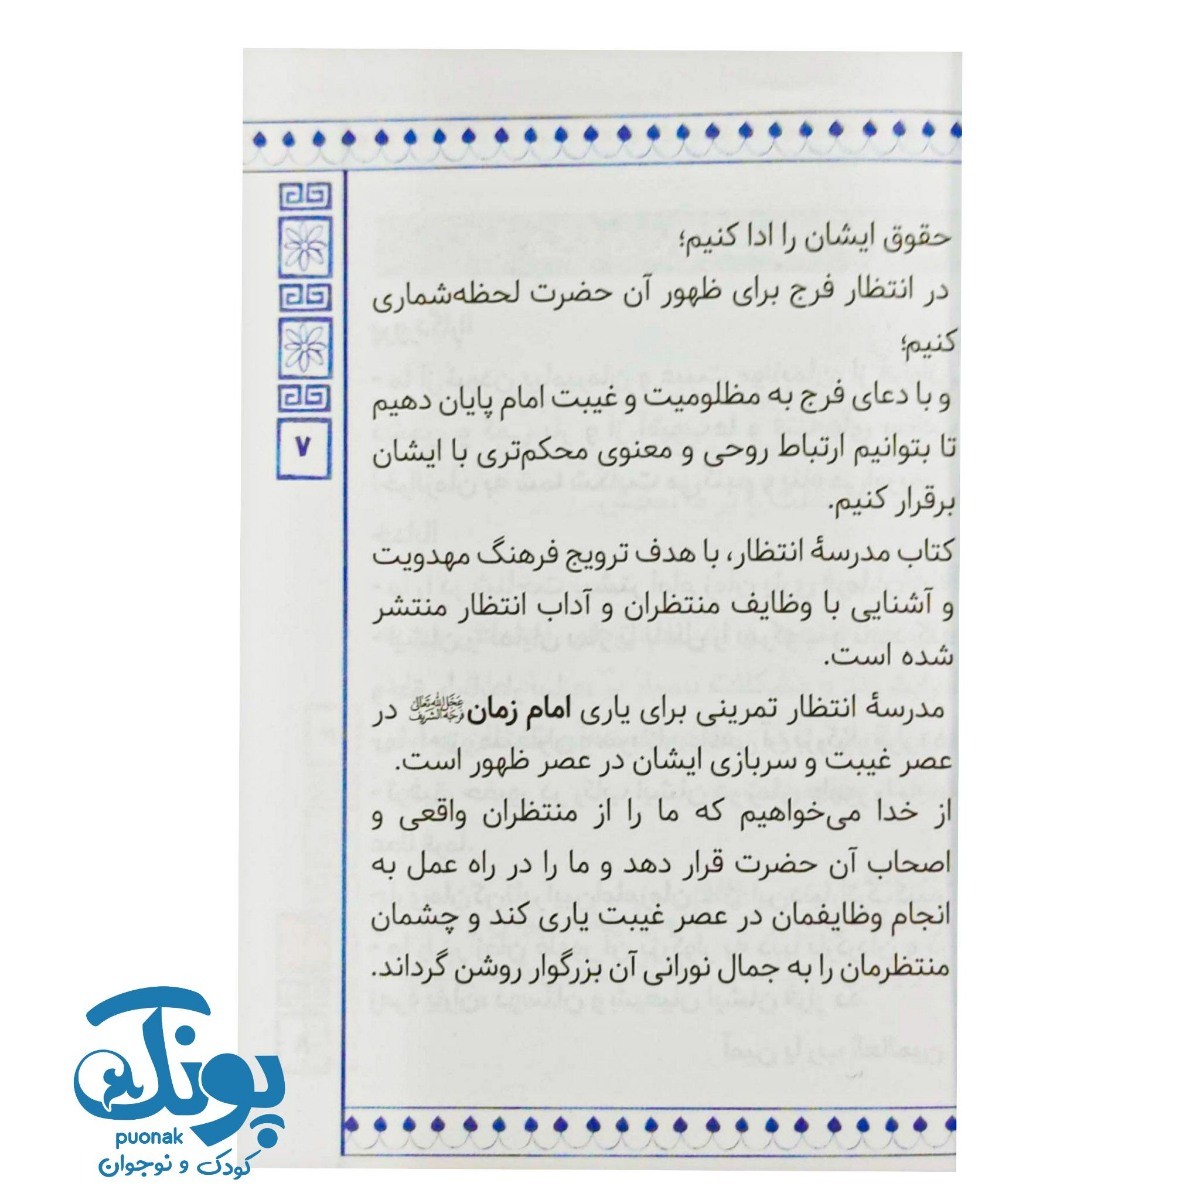 حقوق ایشان را ادا کنیم؛
در انتظار فرج برای ظهور آن حضرت لحظه‌شماری
کنیم؛
و با دعای فرج به مظلومیت و غیبت امام پایان دهیم
تا بتوانیم ارتباط روحی و معنوی محکم‌تری با ایشان
برقرار کنیم.
کتاب مدرسهٔ انتظار، با هدف ترویج فرهنگ مهدویت
و آشنایی با وظایف منتظران و آداب انتظار منتشر
شده است.
مدرسهٔ انتظار تمرینی برای یاری امام زمان عجل الله تعالی فرجه الشریف در
عصر غیبت و سربازی ایشان در عصر ظهور است.
از خدا می‌خواهیم که ما را از منتظران واقعی و
اصحاب آن حضرت قرار دهد و ما را در راه عمل به
انجام وظایفمان در عصر غیبت یاری کند و چشمان
منتظرمان را به جمال نورانی آن بزرگوار روشن گرداند.
۷
پونک
puonak
کودک و نوجوان